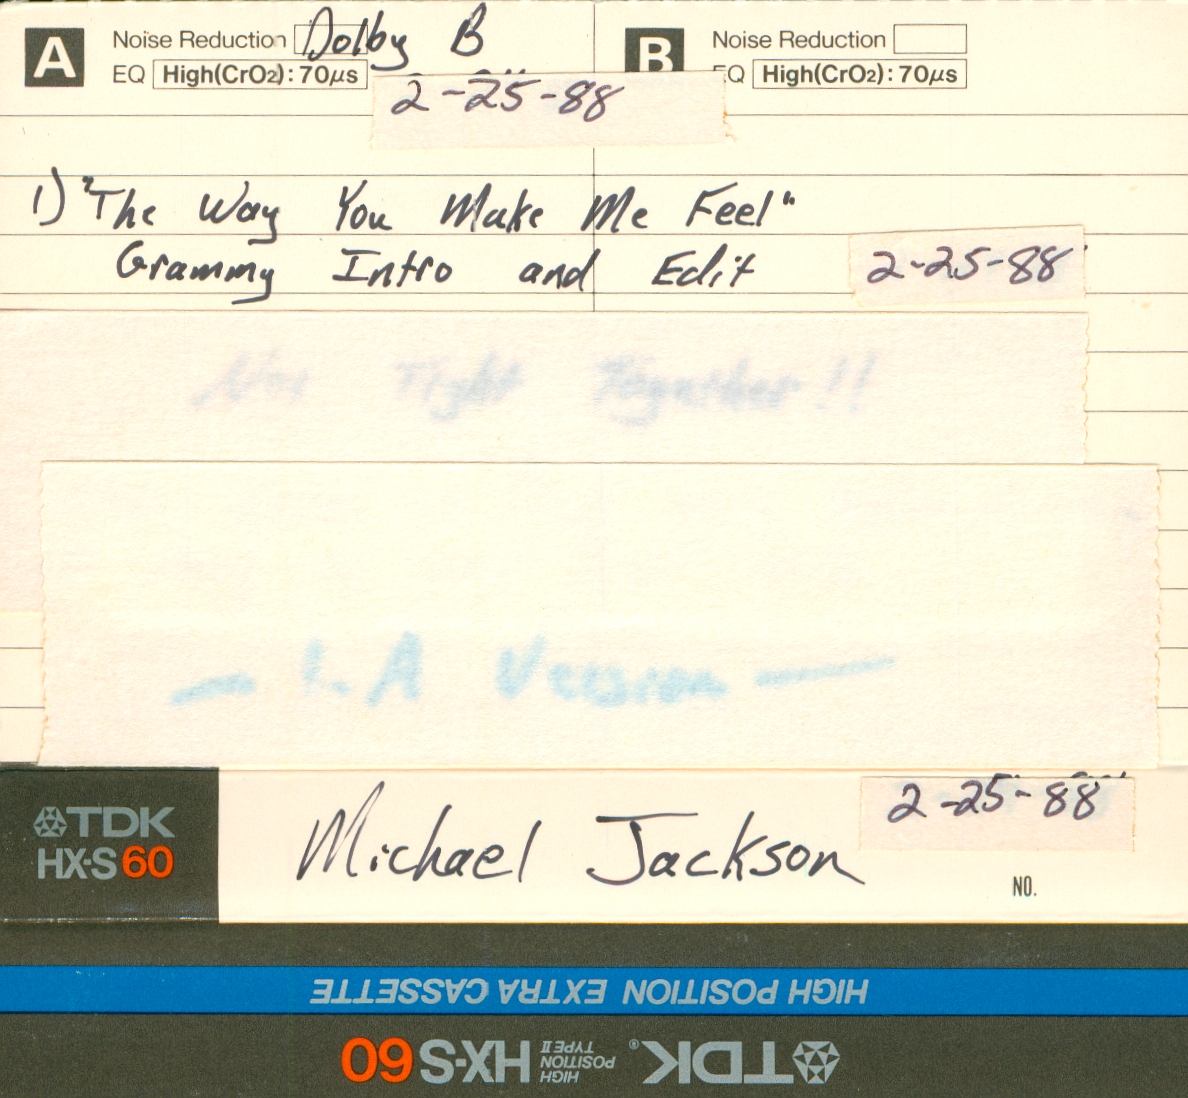 A Noise Reduction Dolby B
EQ High(CrO2): 70µs
B Noise Reduction
EQ High(CrO2): 70µs
2-25-88
1) "The Way You Make Me Feel"
Grammy Intro and Edit 2-25-88
Tight Together!!
— L.A Version —
TDK
HX-S 60
Michael Jackson
2-25-88
NO.
HIGH POSITION EXTRA CASSETTE
TDK HIGH POSITION TYPE II HX-S 60